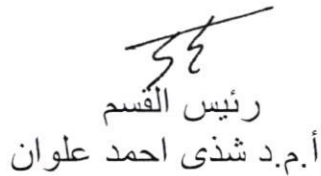 رئيس القسم
أ.م.د شذى احمد علوان